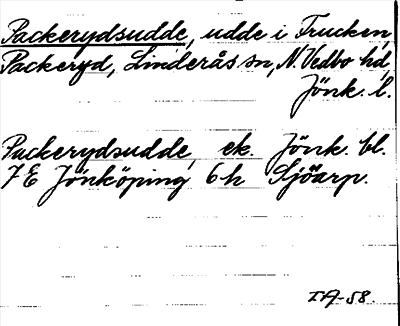 Packerydsudde, udde i Trucken,
Packeryd, Linderås sn, N. Vedbo hd,
Jönk. l.
Packerydsudde, ek. Jönk. bl.
7 E Jönköping 6 h Sjöarp.
IA-58.